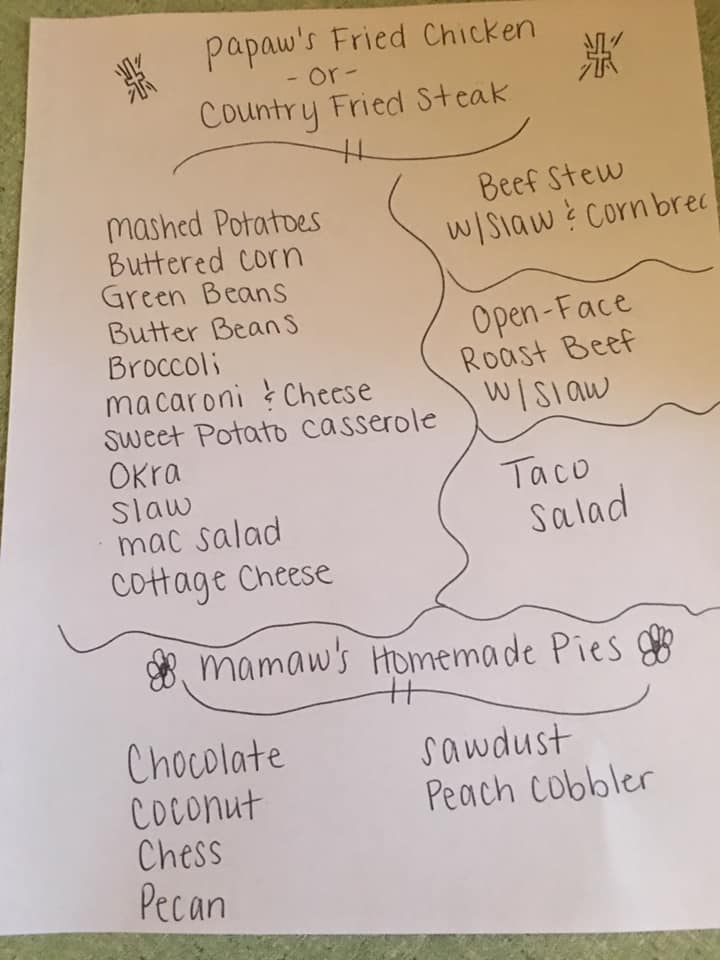 Papaw's Fried Chicken
-or-
Country Fried Steak
Mashed Potatoes
Buttered Corn
Green Beans
Butter Beans
Broccoli
Macaroni & Cheese
Sweet Potato Casserole
Okra
Slaw
Mac Salad
Cottage Cheese
Beef Stew
w/Slaw & Cornbrec
Open-Face
Roast Beef
w/Slaw
Taco
Salad
Mamaw's Homemade Pies
Chocolate
Coconut
Chess
Pecan
Sawdust
Peach Cobbler